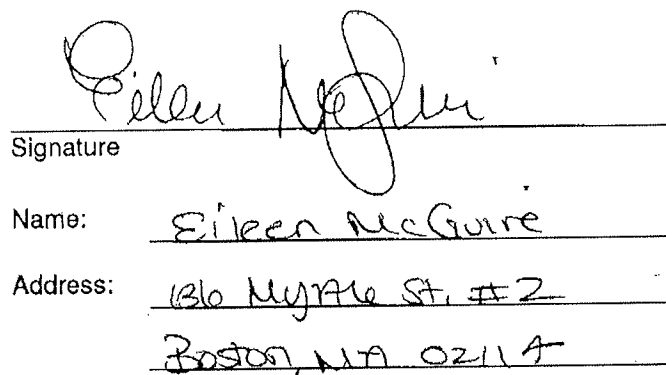 Eileen McGuire
Signature
Name: Eileen McGuire
Address: 136 Myrtle St. #2
Boston, MA 02114